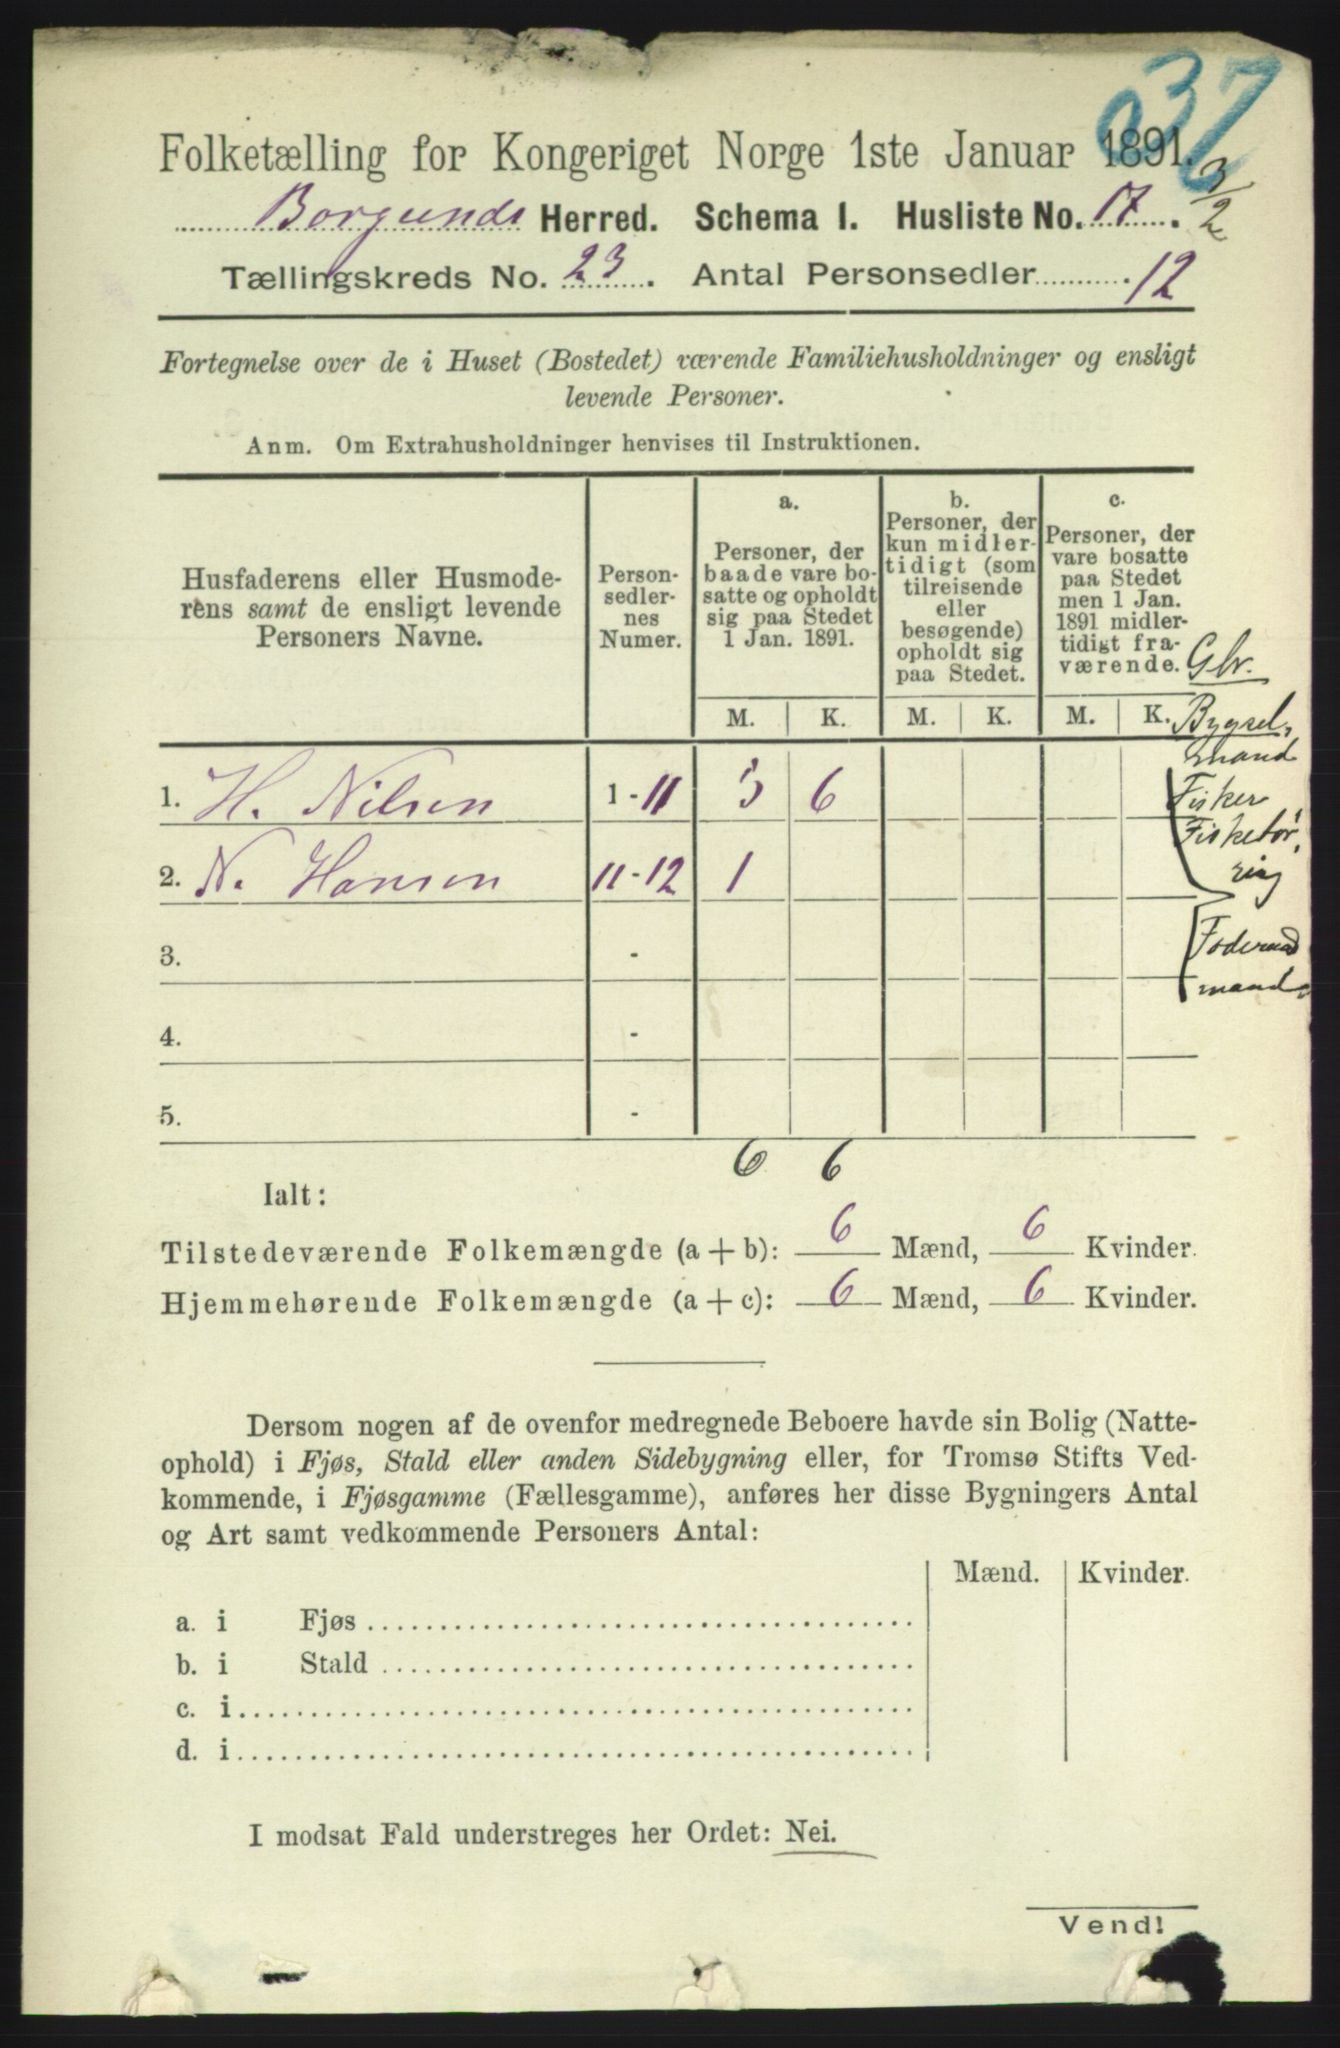 37
Folketælling for Kongeriget Norge 1ste Januar 1891.
3/2
Borgunds Herred. Schema 1. Husliste No. 17.
Tællingskreds No. 23. Antal Personsedler 12
Fortegnelse over de i Huset (Bostedet) værende Familiehusholdninger og ensligt
levende Personer.
Anm. Om Extrahusholdninger henvises til Instruktionen.
Husfaderens eller Husmode-
rens samt de ensligt levende
Personers Navne.
Person-
sedler-
nes
Numer.
a.
Personer, der
baade vare bo-
satte og opholdt
sig paa Stedet
1 Jan. 1891.
b.
Personer, der
kun midler-
tidigt (som
tilreisende
eller
besøgende)
opholdt sig
paa Stedet.
c.
Personer, der
vare bosatte
paa Stedet
men 1 Jan.
1891 midler-
tidigt fra-
værende.
M. K. M. K. M. K.
Gbr.
Bygsel-
mand
1. H. Nilsen 1-11 5 6
Fisker
2. N. Hansen 11-12 1
3. -
mand
4. -
5. -
6 6
Ialt:
Tilstedeværende Folkemængde (a + b): 6 Mænd, 6 Kvinder.
Hjemmehørende Folkemængde (a + c): 6 Mænd, 6 Kvinder.
Dersom nogen af de ovenfor medregnede Beboere havde sin Bolig (Natte-
ophold) i Fjøs, Stald eller anden Sidebygning eller, for Tromsø Stifts Ved-
kommende, i Fjøsgamme (Fællesgamme), anføres her disse Bygningers Antal
og Art samt vedkommende Personers Antal:
Mænd. Kvinder.
a. i Fjøs
b. i Stald
c. i
d. i
I modsat Fald understreges her Ordet: Nei.
Vend!